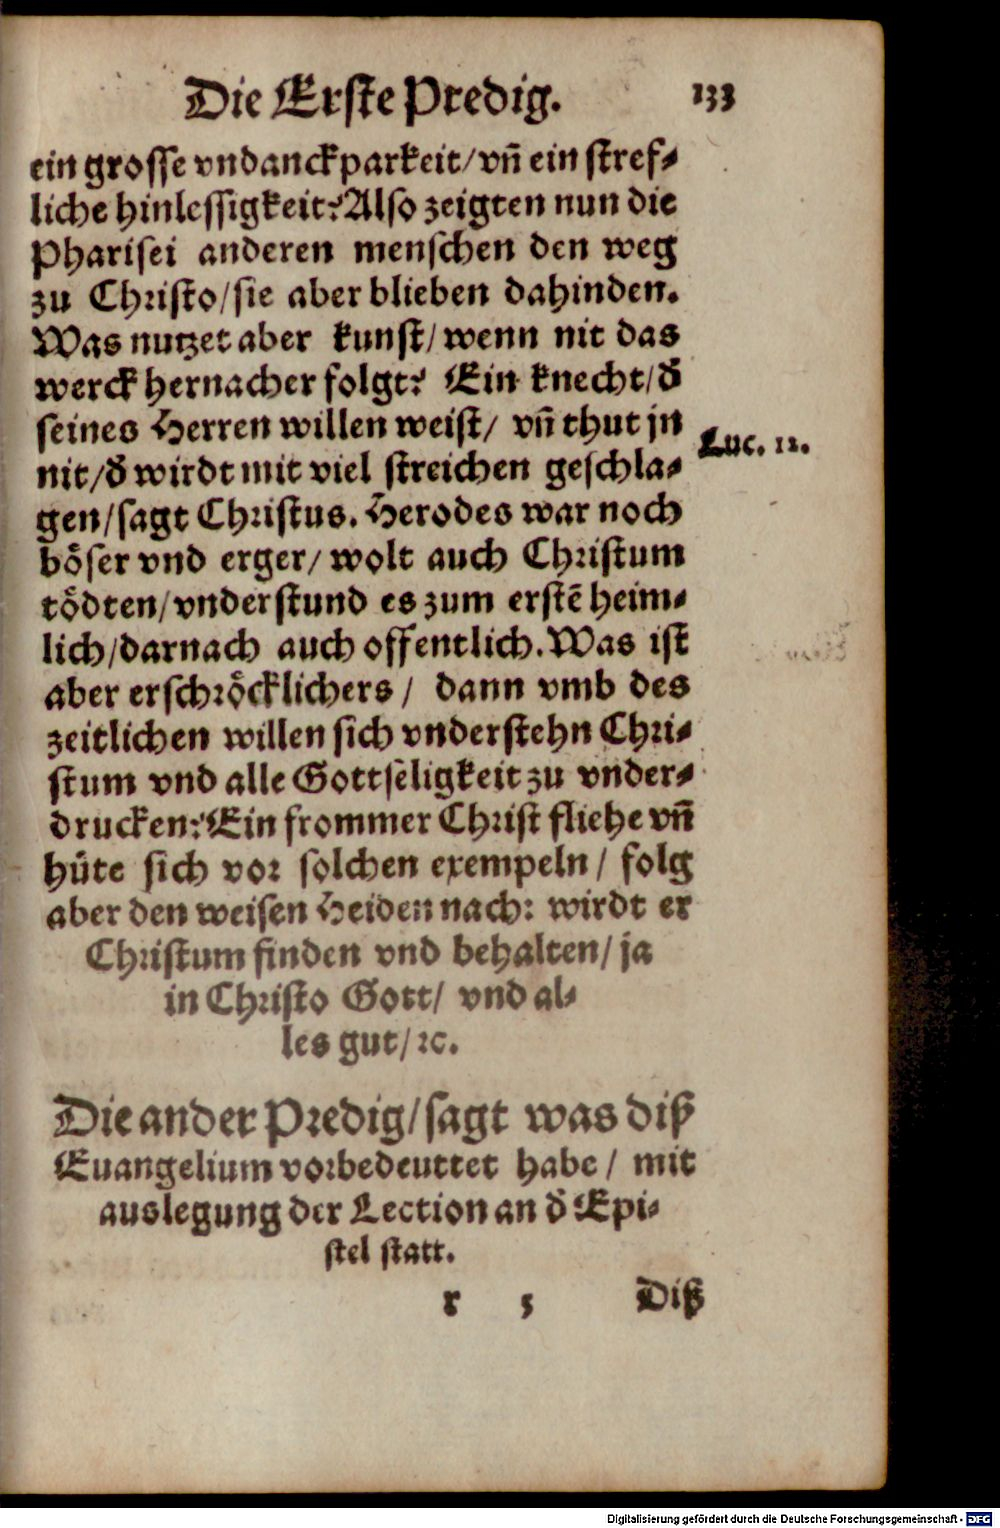 Die Erste Predig. 133
ein grosse vndanckparkeit/vñ ein stref-
liche hinlessigkeit? Also zeigten nun die
Pharisei anderen menschen den weg
zu Christo/sie aber blieben dahinden.
Was nutzet aber kunst/wenn nit das
werck hernacher folgt? Ein knecht/đ
seines Herren willen weist/ vñ thut jn
nit/đ wirdt mit viel streichen geschla-
Luc. 12.
gen/sagt Christus. Herodes war noch
böser vnd erger/ wolt auch Christum
tödten/vnderstund es zum erstē heim-
lich/darnach auch offentlich. Was ist
aber erschröcklichers/ dann vmb des
zeitlichen willen sich vnderstehn Chri-
stum vnd alle Gottseligkeit zu vnder-
drucken? Ein frommer Christ fliehe vñ
hüte sich vor solchen exempeln/ folg
aber den weisen Heiden nach: wirdt er
Christum finden vnd behalten/ ja
in Christo Gott/ vnd al-
les gut/ꝛc.
Die ander Predig/sagt was diß
Euangelium vorbedeuttet habe/ mit
auslegung der Lection an đ Epi-
stel statt.
r 5 Diß
Digitalisierung gefördert durch die Deutsche Forschungsgemeinschaft - DFG